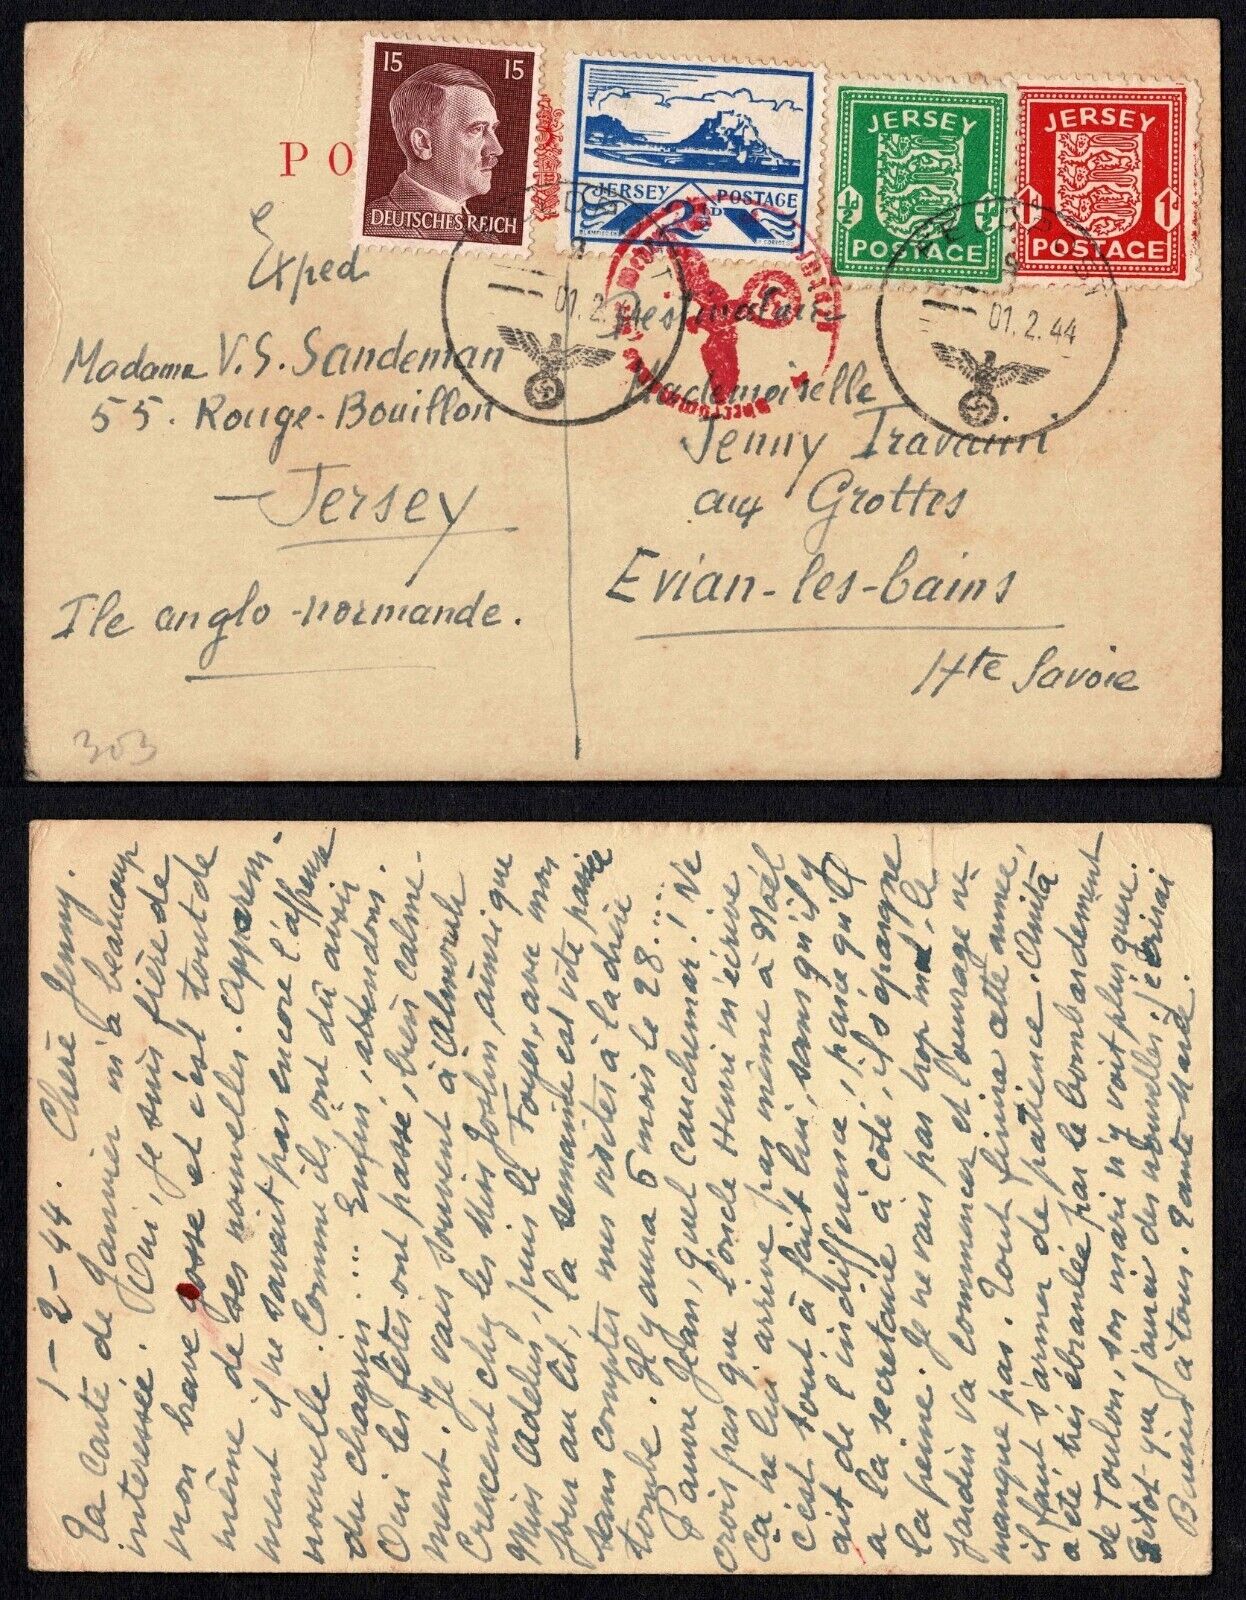 15 15
DEUTSCHES REICH
JERSEY POSTAGE
2½D
JERSEY
½D ½D
POSTAGE
JERSEY
1D 1D
POSTAGE
PO
01.2.44
01.2.44
Exped
Madame V.S. Sandeman
55. Rouge-Bouillon
Jersey
Ile anglo-normande.
303
Destinataire
Mademoiselle
Jenny Travaini
aux Grottes
Evian-les-bains
Hte Savoie
1-2-44. Chère Jenny.
Ta carte de Janvier m'a beaucoup
interessée. Oui, je suis fière de
mon brave gosse et c'est tout de
même de ses nouvelles. Apparem-
ment il ne savait pas encore l'affreuse
nouvelle. Comme ils ont dû avoir
du chagrin... Enfin, attendons.
Oui les fêtes ont passé, très calme-
ment. Je vais souvent à
Crescent chez les Miss Joslin, ainsi que
Miss , puis le Foyer, avec mon
jour au lit, la semaine est vite passée
sans compter mes visites à la chère
tombe. Il y aura 6 mois le 28....
Pauvre Jean, quel cauchemar! Ne
crois pas que l'oncle Henri m'écrive
Ça ne lui arrive pas même à Noël
c'est tout à fait lui, sans qu'il y
ait de l'indifférence, parce qu'il
a la secretaire à coté, il s'épargne
la peine. Je ne vais pas trop mal, le
jardin va commencer et l'ouvrage ne
manque pas. Tout finira cette année,
il faut s'armer de patience. Anita
a été très ébranlée par le bombardement
de Toulon, son mari n'y voit plus guère.
Sitôt que j'aurai des nouvelles j'écrirai
Baisers à tous. Tante